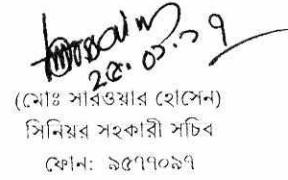 ২৫.০১.১৭
(মোঃ সারওয়ার হোসেন)
সিনিয়র সহকারী সচিব
ফোন: ৯৫৭৭০৯৭